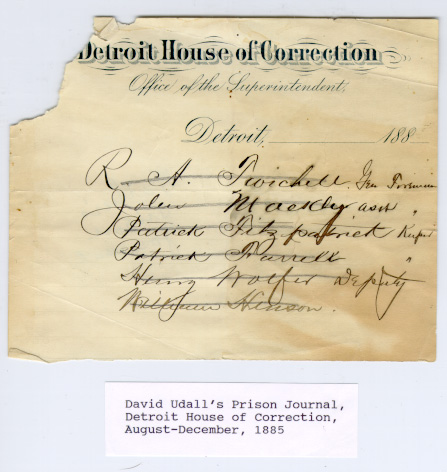 Detroit House of Correction
Office of the Superintendent,
Detroit, 188
R. A. Twichell. Gen Foreman
John Mackley asst "
Patrick Fitzpatrick Keeper
Patrick Farrell "
Henry Wolfer Deputy
William Henson.
David Udall's Prison Journal,
Detroit House of Correction,
August-December, 1885